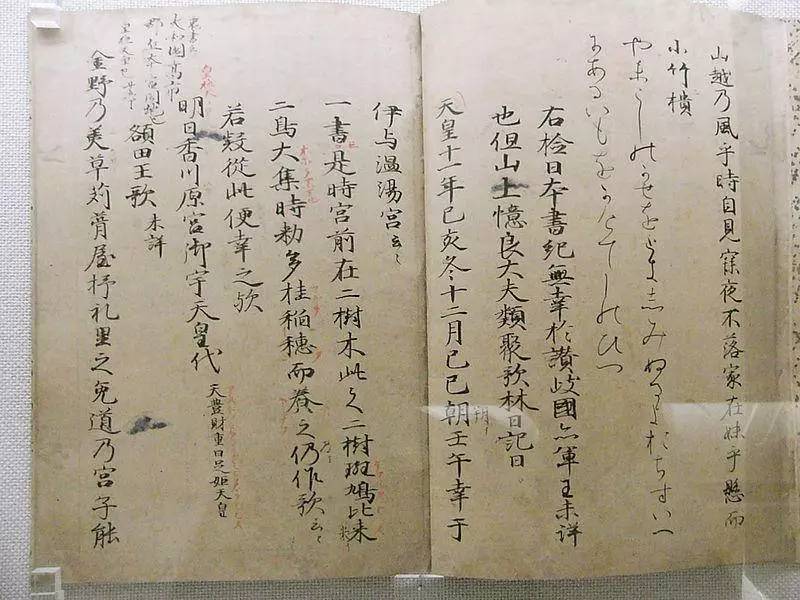 山越乃風乎時自見寐夜不落家在妹乎懸而
小竹樻
やまこしのかせをときしみぬるよおちすいへ
にあるいもをかけてしのひつ
右捡日本書紀無幸於讃岐國亦軍王未詳
也但山上憶良大夫類聚歌林曰記曰
天皇十一年己亥冬十二月己巳朝壬午幸于
朔
伊与温湯宮云々
一書是時宮前在二樹木此之二樹斑鳩比来
二鳥大集時勅多桂稲穗而養之仍作歌云々
若疑從此便幸之歟
明日香川原宮御宇天皇代 天豊財重日足姫天皇
額田王歌 未詳
金野乃美草苅葺屋杼礼里之兎道乃宮子能